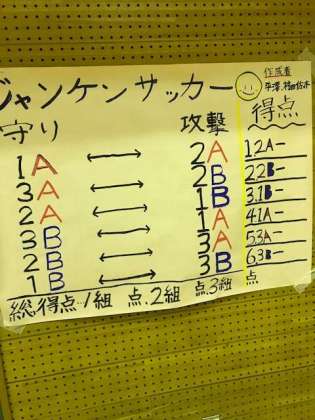 ジャンケンサッカー
作成者
守り 攻撃 得点
1A ↔ 2A 1.2A−
3A ↔ 2B 2.2B−
2A ↔ 1B 3.1B−
3B ↔ 1A 4.1A−
2B ↔ 3A 5.3A−
1B ↔ 3B 6.3B−
総得点/1組 点.2組 点.3組 点